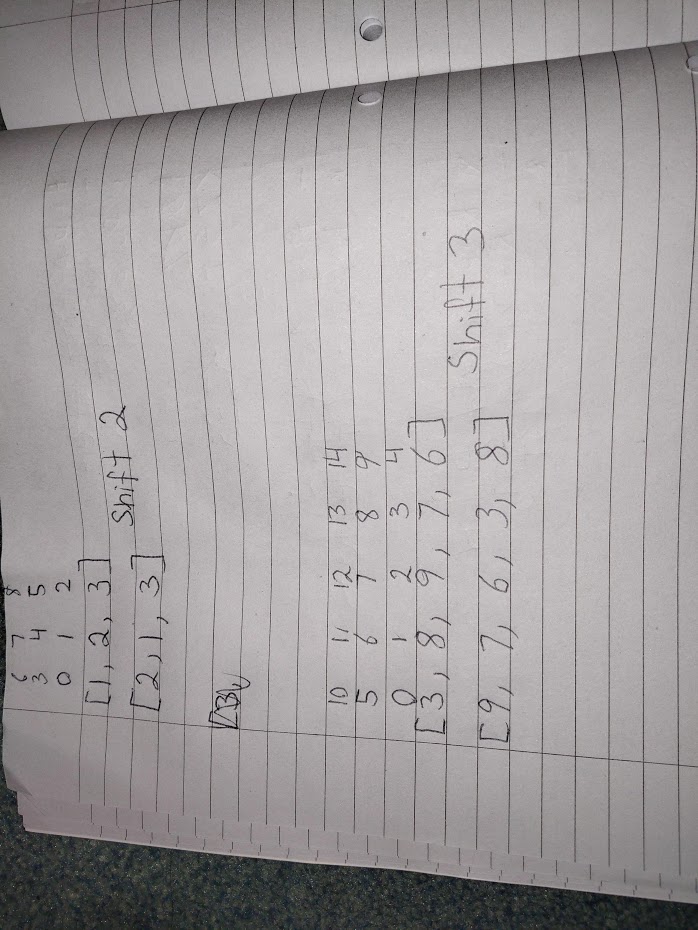 6 7 8
3 4 5
0 1 2
[1, 2, 3]
Shift 2
[2, 1, 3]
10 11 12 13 14
5 6 7 8 9
0 1 2 3 4
[3, 8, 9, 7, 6]
Shift 3
[9, 7, 6, 3, 8]